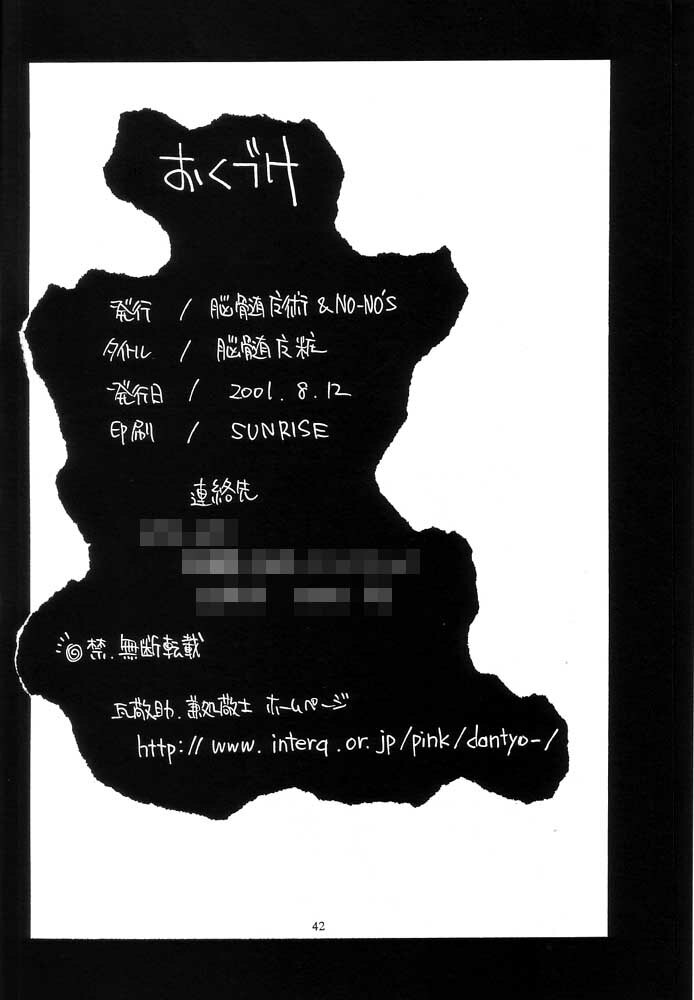 おくづけ
発行 / 脳髄皮術 & NO-NO'S
タイトル / 脳髄皮粧
発行日 / 2001. 8. 12
印刷 / SUNRISE
連絡先
禁.無断転載
瓦敬助.兼処敬士 ホームページ
http://www.interq.or.jp/pink/dantyo-/
42